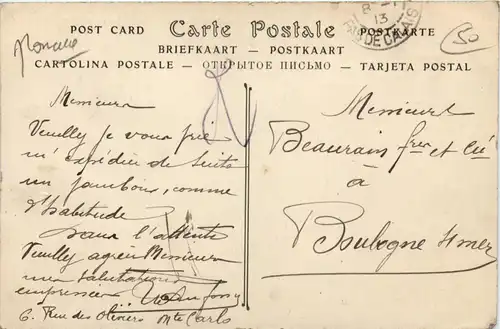 POST CARD Carte Postale POSTKARTE
BRIEFKAART — POSTKAART
CARTOLINA POSTALE — ОТКРЫТОЕ ПИСЬМО — TARJETA POSTAL
Monaco
50
8 - 1
13
PAS DE CALAIS
Messieurs
Veuilly je vous prie
m'expédier de suite
un jambon, comme
d'habitude
dans l'attente
Veuilly agréer Messieurs
mes salutations
empressées
6. Rue des Oliviers Mte Carlo
Messieurs
Beaurain frer et Cie
à
Boulogne s/mer